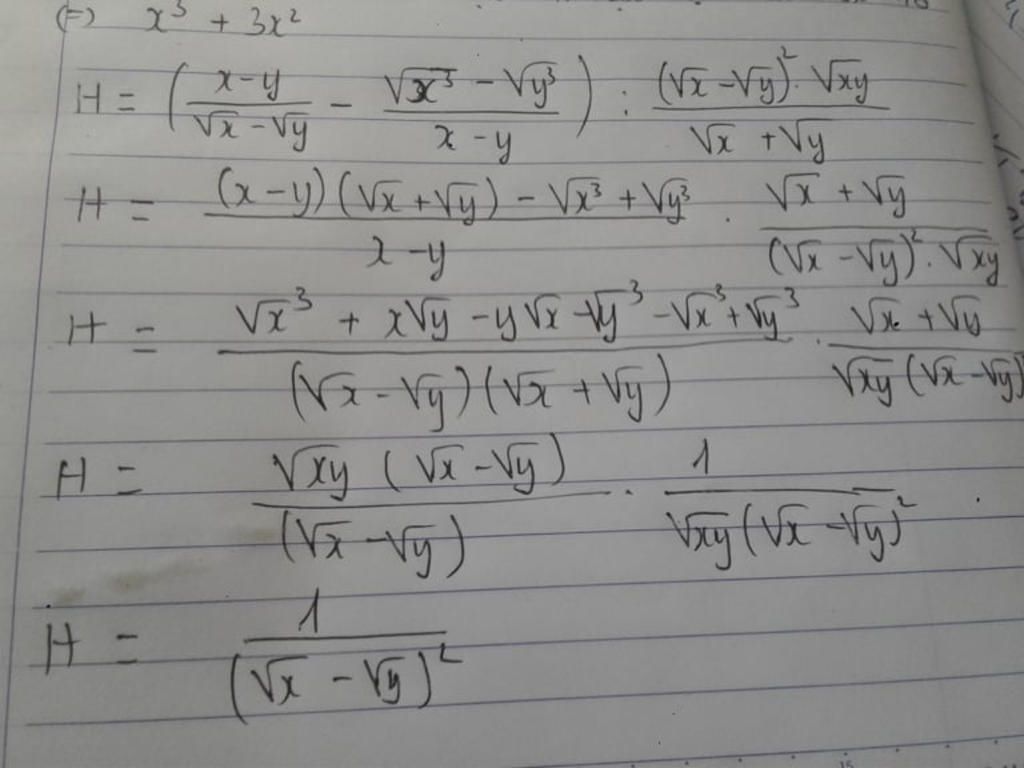 (=) x³ + 3x²
H = ( (x-y)/(√x - √y) - (√x³ - √y³)/(x - y) ) : ((√x - √y)² · √xy)/(√x + √y)
H = ((x - y)(√x + √y) - √x³ + √y³)/(x - y) · (√x + √y)/((√x - √y)² · √xy)
H = (√x³ + x√y - y√x - √y³ - √x³ + √y³)/((√x - √y)(√x + √y)) · (√x + √y)/(√xy (√x - √y)
H = (√xy (√x - √y))/((√x - √y)) · 1/(√xy (√x - √y)²)
H = 1/(√x - √y)²